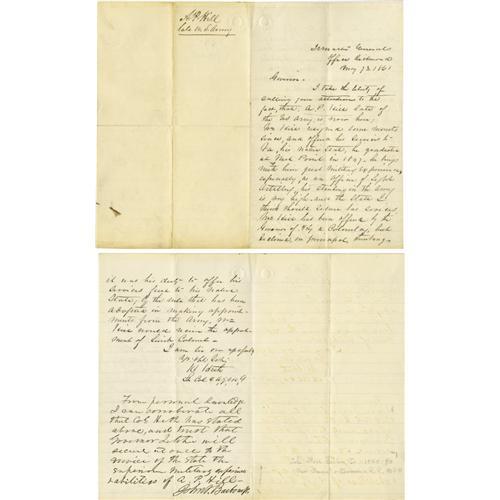 A. P. Hill
late U. S. Army
General's
Office Richmond
May 1861
Governor.
I take the liberty of
calling your attention to the
fact, that A. P. Hill late of
the Army is now here,
Mr Hill resigned some months
since, and offered his services to
Va, his native State, he graduated
at West Point in 1847. he brings
with him great military experience
especially as an Officer of Light
Artillery, his standing in the army
is very high and the State I
think should secure his services
Mr Hill has been offered by the
Governor of Ky a Colonelcy, but
declined on principal thinking
it was his duty to offer his
services first to his native
State, by the rule that has been
adopted in making appoint-
ments from the Army, Mr
Hill would receive the appoint-
ment of Lieut Colonel-
I am Sir very respectfully
H Heth
Lt Col
From personal knowledge
I can corroborate all
that Col Heth has stated
above, and trust that
Governor Letcher will
secure at once to the
service of the State the
superior military experience
& abilities of A. P. Hill-
John S. Barbour Jr